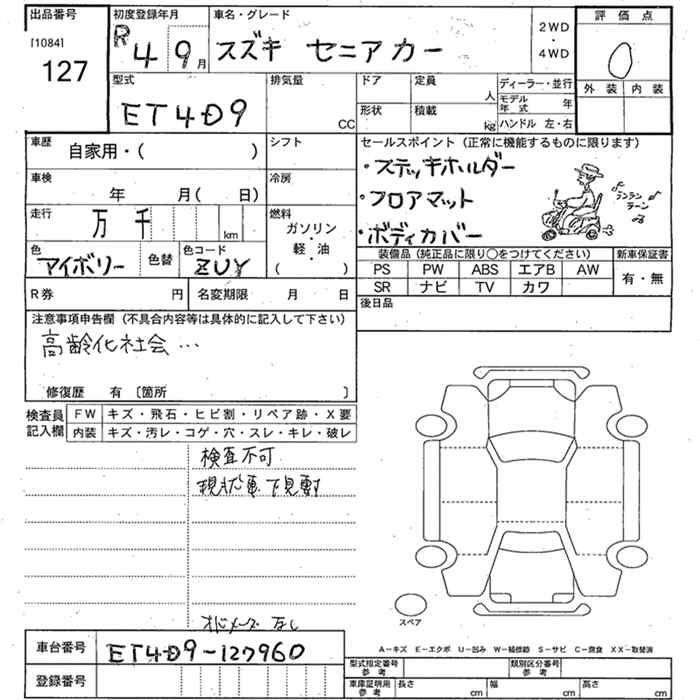 出品番号 初度登録年月 車名・グレード 評価点
[1084] 127 R4 9月 スズキ セニアカー 2WD ・ 4WD 0
型式 排気量 ドア 定員 ディーラー・並行 外装 内装
ET4D9 CC 人 モデル年式 年
形状 積載 kg ハンドル 左・右
車歴 自家用・( ) シフト セールスポイント (正常に機能するものに限ります)
・ステッキホルダー
車検 年 月( 日) 冷房 ・フロアマット ランランラーン
走行 万千 km 燃料 ガソリン・軽・油 ( ) ・ボディカバー
色 アイボリー 色替 色コード ZUY 装備品 (純正品に限り○をつけてください) 新車保証書
PS PW ABS エアB AW 有・無
SR ナビ TV カワ
R券 円 名変期限 月 日 後日品
注意事項申告欄 (不具合内容等は具体的に記入して下さい)
高齢化社会…
修復歴 有 〔箇所 〕
検査員記入欄 FW キズ・飛石・ヒビ割・リペア跡・X要
内装 キズ・汚レ・コゲ・穴・スレ・キレ・破レ
検査不可
現状車 下見要
スペア
オドメーター なし
A-キズ E-エクボ U-凹み W-補修跡 S-サビ C-腐食 XX-取替済
車台番号 ET4D9-127960
型式指定番号 参考 類別区分番号 参考
登録番号 車庫証明用 参考 長さ cm 幅 cm 高さ cm